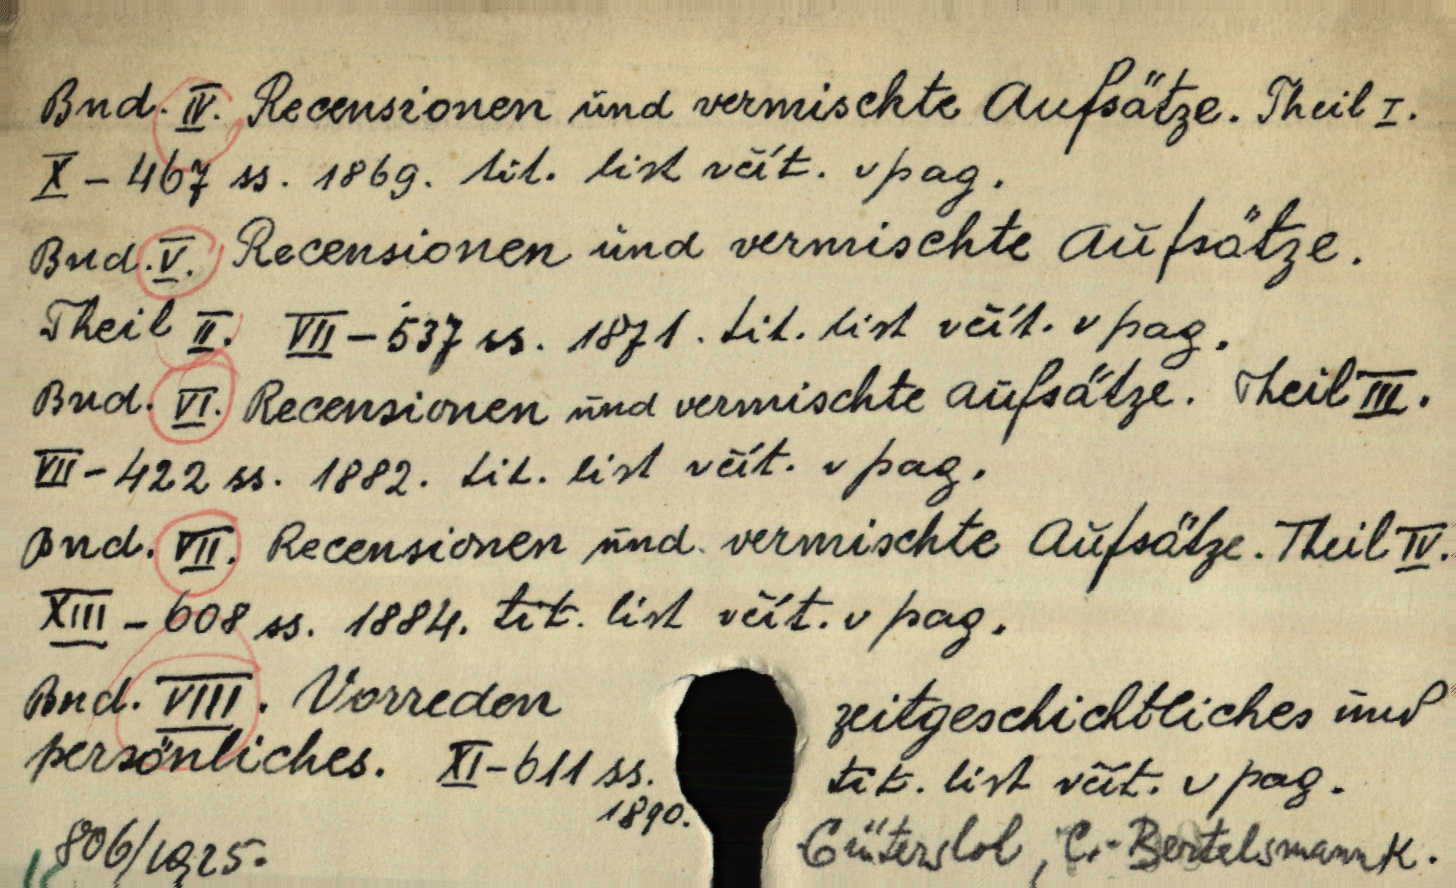 Bnd. IV. Recensionen und vermischte Aufsätze. Theil I.
X – 467 ss. 1869. tit. list včít. v pag.
Bnd. V. Recensionen und vermischte Aufsätze.
Theil II. VII – 537 ss. 1871. tit. list včít. v pag.
Bnd. VI. Recensionen und vermischte Aufsätze. Theil III.
VII – 422 ss. 1882. tit. list včít. v pag.
Bnd. VII. Recensionen und vermischte Aufsätze. Theil IV.
XIII – 608 ss. 1884. tit. list včít. v pag.
Bnd. VIII. Vorreden zeitgeschichtliches und
persönliches. XI – 611 ss. tit. list včít. v pag.
1890.
806/1925. Güterslol, C. Bertelsmann